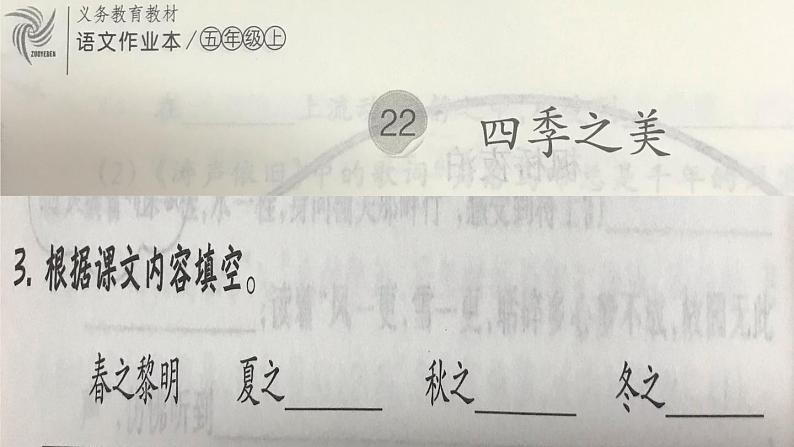 义务教育教材
语文作业本/五年级上
ZUOYEBEN
22 四季之美
(2)《涛声依旧》中的歌词
3. 根据课文内容填空。
春之黎明 夏之______ 秋之______ 冬之______